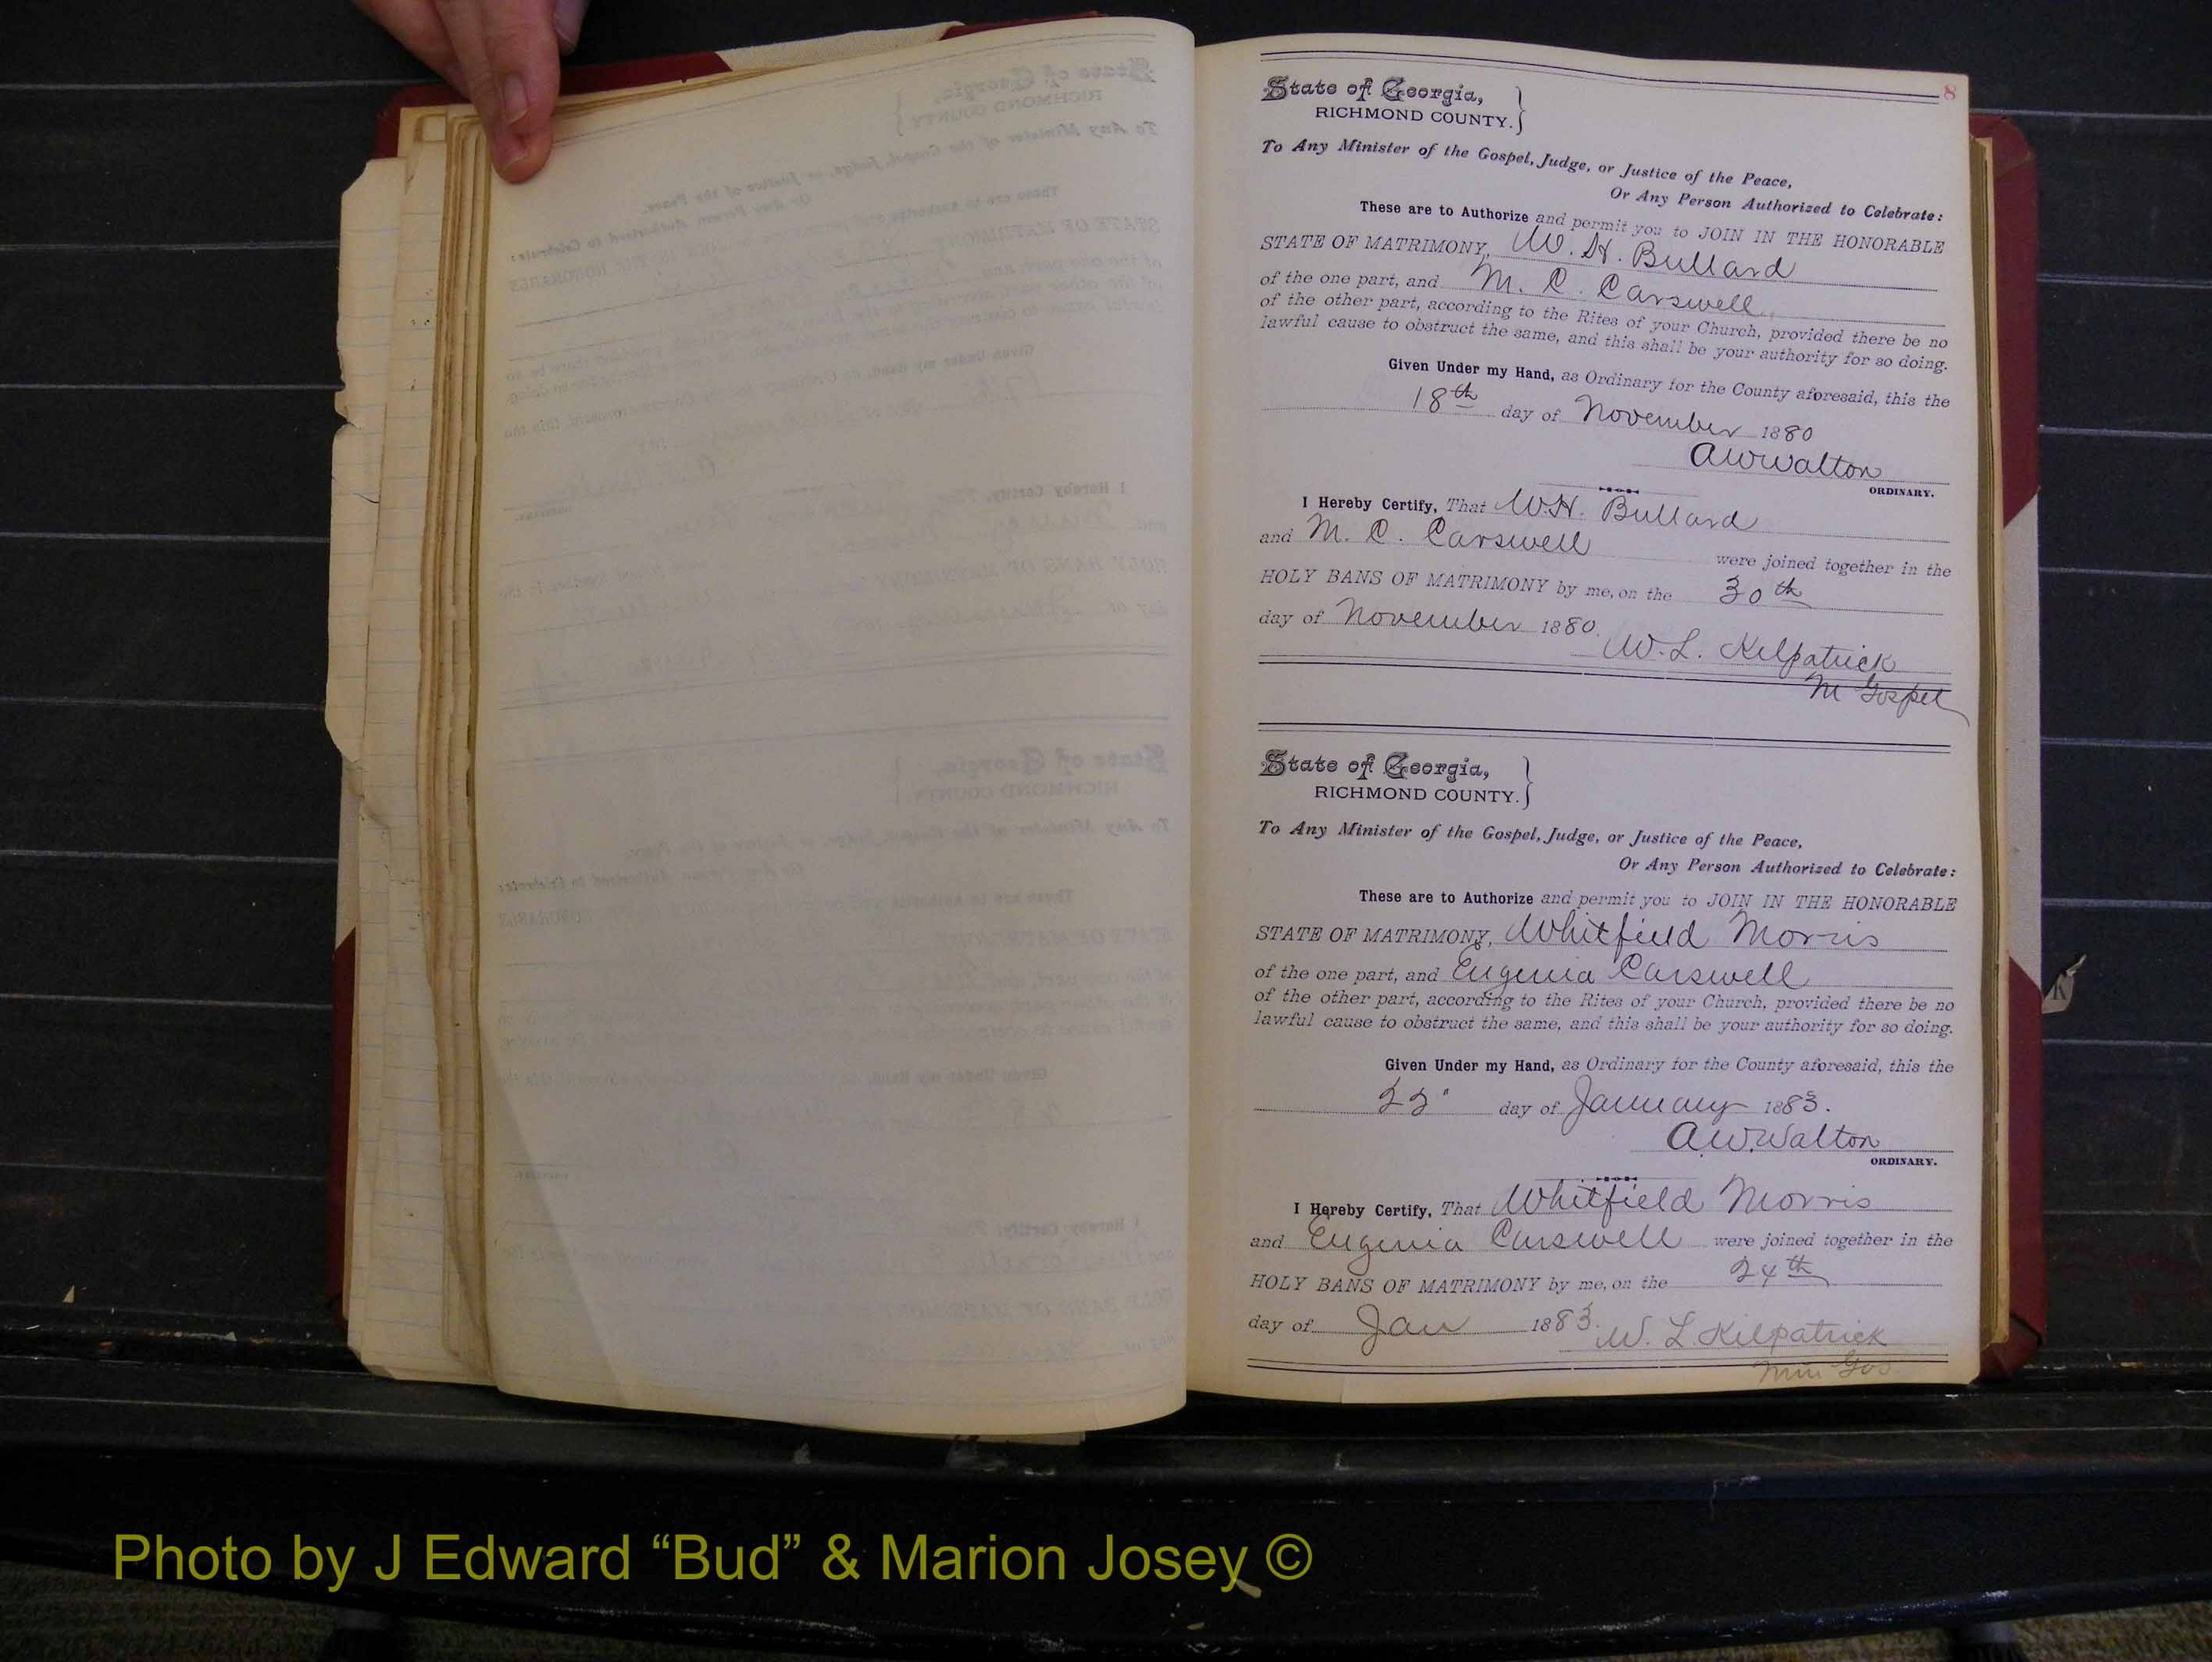 8
State of Georgia,
RICHMOND COUNTY.
To Any Minister of the Gospel, Judge, or Justice of the Peace,
Or Any Person Authorized to Celebrate:
These are to Authorize and permit you to JOIN IN THE HONORABLE
STATE OF MATRIMONY, W. H. Bullard
of the one part, and M. C. Carswell
of the other part, according to the Rites of your Church, provided there be no
lawful cause to obstruct the same, and this shall be your authority for so doing.
Given Under my Hand, as Ordinary for the County aforesaid, this the
18th day of November 1880
A W Walton
ORDINARY.
I Hereby Certify, That W. H. Bullard
and M. C. Carswell were joined together in the
HOLY BANS OF MATRIMONY by me, on the 30th
day of November 1880.
W. L. Kilpatrick
M Gospel
State of Georgia,
RICHMOND COUNTY.
To Any Minister of the Gospel, Judge, or Justice of the Peace,
Or Any Person Authorized to Celebrate:
These are to Authorize and permit you to JOIN IN THE HONORABLE
STATE OF MATRIMONY, Whitfield Morris
of the one part, and Eugenia Carswell
of the other part, according to the Rites of your Church, provided there be no
lawful cause to obstruct the same, and this shall be your authority for so doing.
Given Under my Hand, as Ordinary for the County aforesaid, this the
22" day of January 1883.
A. W. Walton
ORDINARY.
I Hereby Certify, That Whitfield Morris
and Eugenia Carswell were joined together in the
HOLY BANS OF MATRIMONY by me, on the 24th
day of Jan 1883.
W. L Kilpatrick
Min Gos.
Photo by J Edward “Bud” & Marion Josey ©